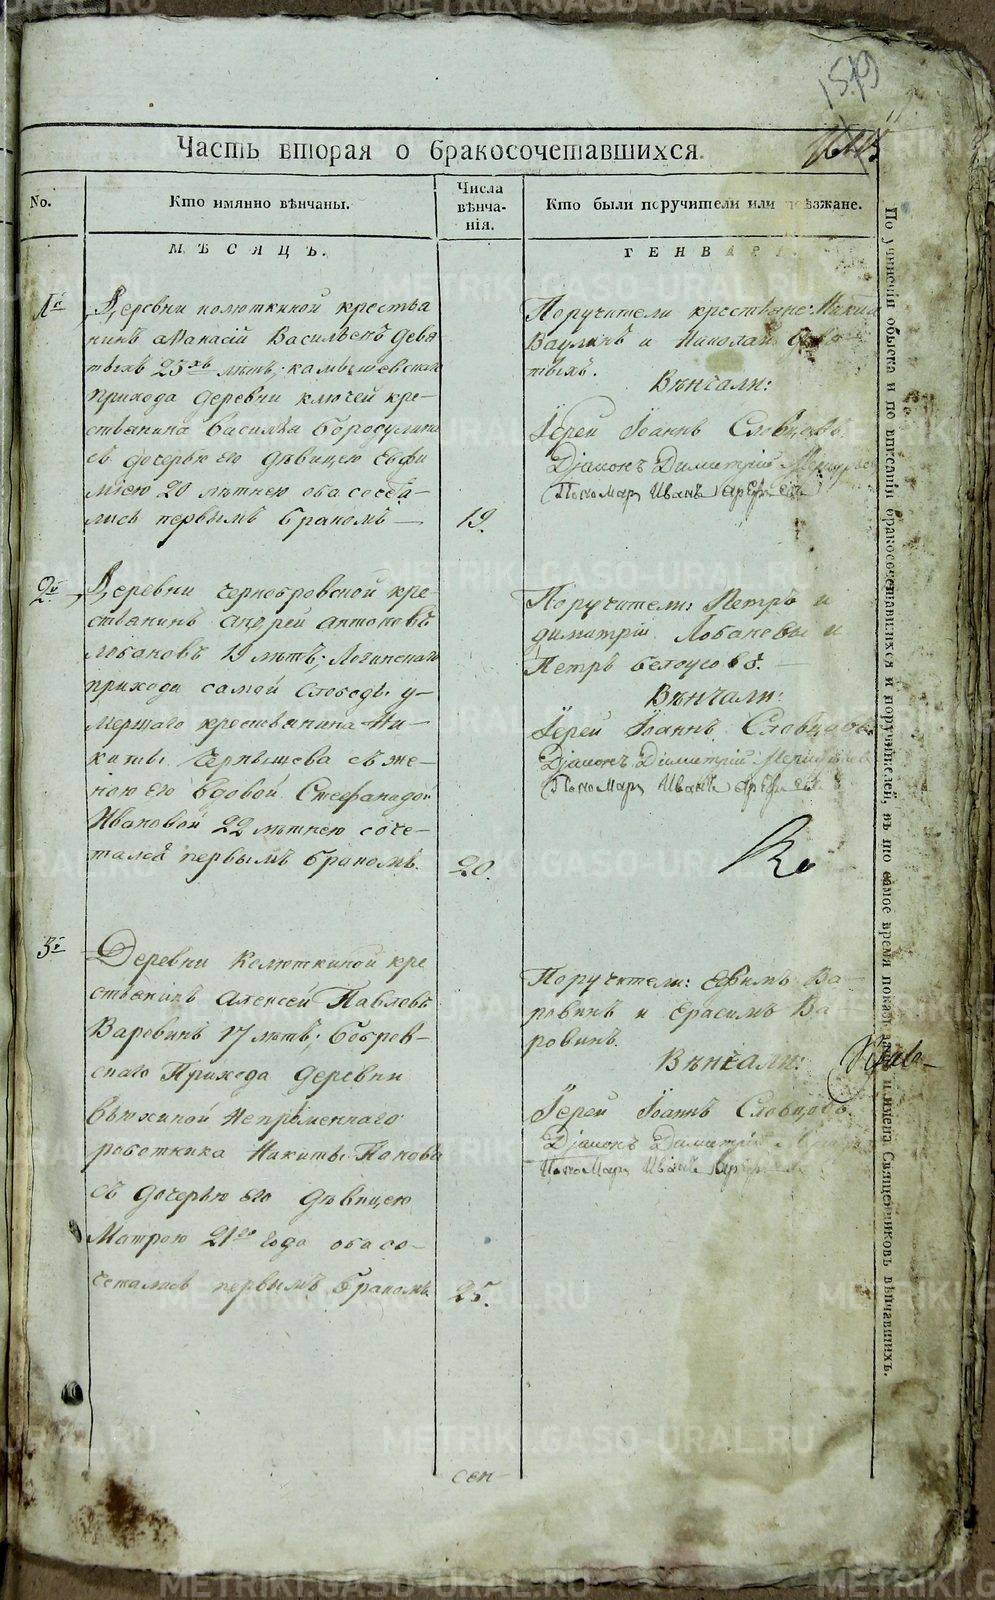 1519
Часть вторая о бракосочетавшихся.
No.
Кто имянно вѣнчаны.
Числа вѣнча-нія.
Кто были поручители или поѣзжане.
МѢСЯЦЪ.
ГЕНВАРЬ.
1й
Деревни колюткиной крестья
нинъ Аѳанасій Васильевъ девя
тыхъ 23хъ лѣтъ; камышевскаго
прихода деревни ключей кре-
стьянина Василья Боросулина
съ дочерью его дѣвицею Евфи
міею 20 лѣтнею оба сочета-
лись первымъ бракомъ —
19.
Поручители крестьяне: Никита
Ваулинъ и Николай Девя
тыхъ.
Вѣнчали:
Іерей Іоаннъ Словцовъ.
Діаконъ Димитрій
Пономарь Иванъ Арефьевъ
2й
Деревни чернобровской кре-
стьянинъ андрей антоновъ
лобановъ 19 лѣтъ; Логинскаго
прихода самой слободы у-
мершаго крестьянина Ни-
киты Чернышева съ же-
ною его вдовой Стефанидой
Ивановой 22 лѣтнею соче-
тался первымъ бракомъ.
20.
Поручители: Петръ и
димитрій Лобановы и
Петръ белоусовъ. —
Вѣнчали:
Іерей Іоаннъ Словцовъ.
Діаконъ Димитрій
Пономарь Иванъ Арефьевъ
3й
Деревни Колюткиной кре
стьянинъ Алексей Павловъ
Варовинъ 17 лѣтъ; Бобров-
скаго Прихода деревни
Вьюхиной Непремѣннаго
работника Никиты Попова
съ дочерью его дѣвицею
Матроною 21го года оба со-
четались первымъ бракомъ.
25.
Поручители: Ефимъ Ва-
ровинъ и Ерасимъ Ва
ровинъ.
Вѣнчали:
Іерей Іоаннъ Словцовъ.
Діаконъ Димитрій
Пономарь Иванъ Арефьевъ
сен-
По учиненіи обыска и по вписаніи бракосочетавшихся и поручителей, въ то самое время показывать и имена Священниковъ вѣнчавшихъ.
METRIKI.GASO-URAL.RU